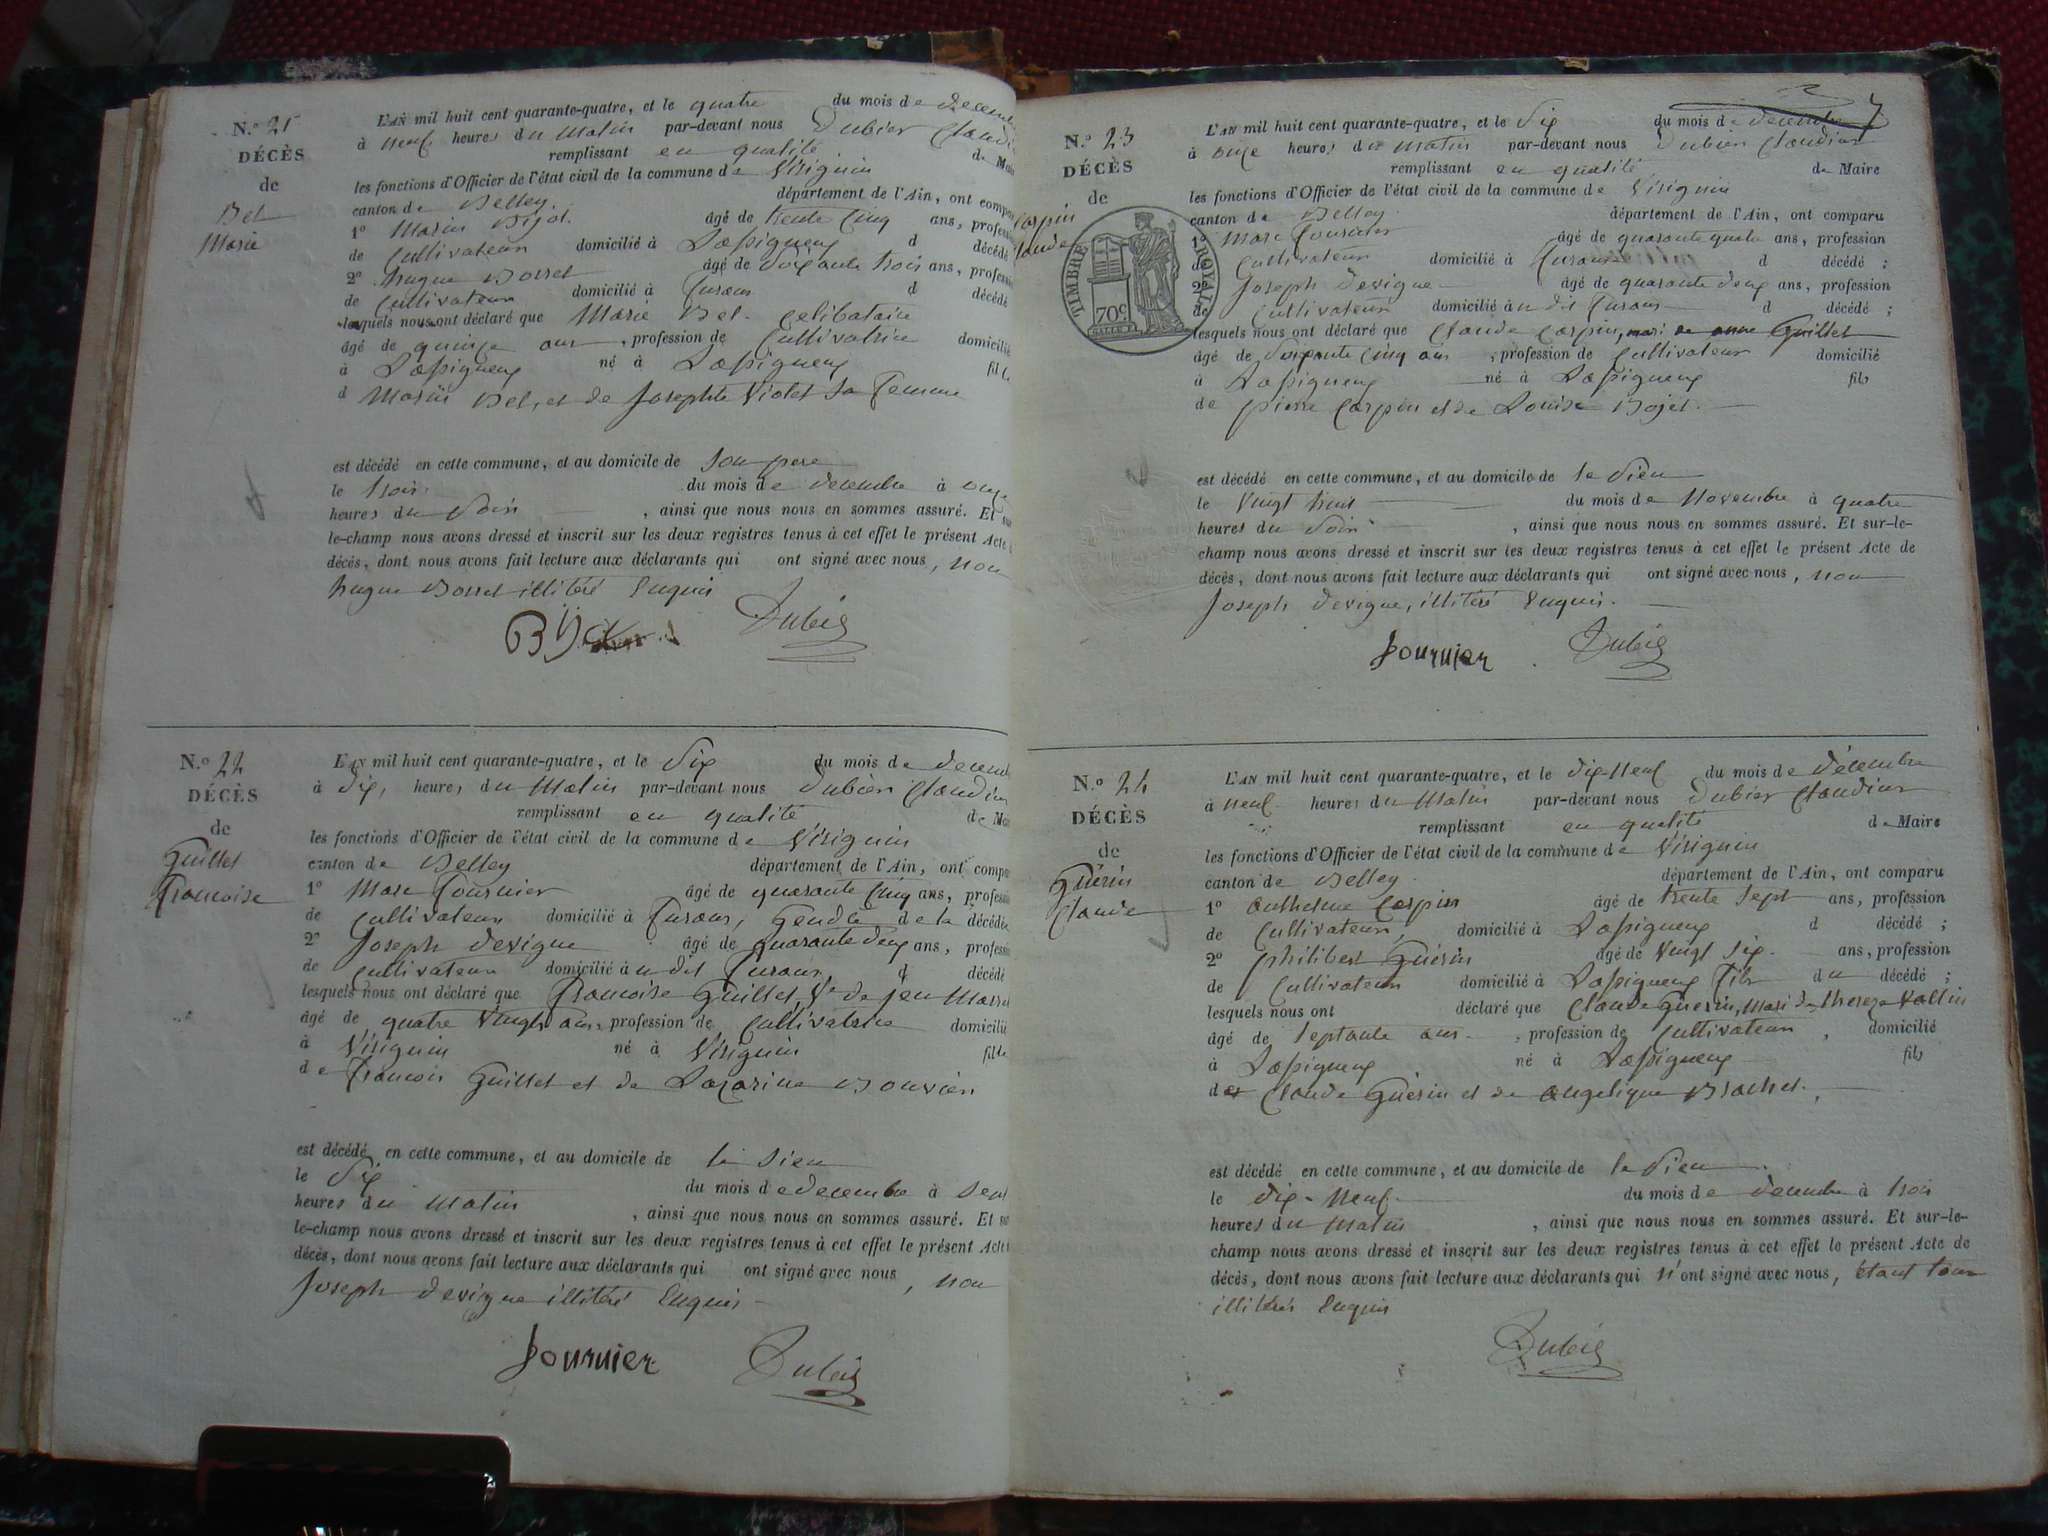 N.° 21
DÉCÈS
de
Bel
Marie
L'AN mil huit cent quarante-quatre, et le quatre du mois de decem
à neuf heures du Matin par-devant nous Dubier Claudi
remplissant en qualité de Mai
les fonctions d'Officier de l'état civil de la commune de Virignin
canton de Belley. département de l'Ain, ont compa
1° Marin âgé de trente cinq ans, profess
de Cultivateur domicilié à d décédé
2° hugue Borret âgé de soixante trois ans, profess
de Cultivateur domicilié à d décédé
lesquels nous ont déclaré que Marie Bel. Celibataire
âgé de quinze ans, profession de Cultivatrice domicilié
à né à fille
d Marin Bel, et de Josephte Violet sa femme
est décédé en cette commune, et au domicile de son pere
le trois du mois de decembre à onze
heures du Soir, ainsi que nous nous en sommes assuré. Et sur
le-champ nous avons dressé et inscrit sur les deux registres tenus à cet effet le présent Acte
décès, dont nous avons fait lecture aux déclarants qui ont signé avec nous, non
hugue Borret illitéré Enquis
Dubier
N.° 22
DÉCÈS
de
Guillet
Francoise
L'AN mil huit cent quarante-quatre, et le Six du mois de decemb
à dix, heures du Matin par-devant nous Dubier Claudius
remplissant en qualité de Mai
les fonctions d'Officier de l'état civil de la commune de Virignin
canton de Belley département de l'Ain, ont compa
1° Marc Fournier âgé de quarante cinq ans, profess
de Cultivateur domicilié à Gendre de la décédée
2° Joseph devigne âgé de quarante deux ans, profess
de Cultivateur domicilié à u dit d décédé
lesquels nous ont déclaré que Francoise Guillet, Ve de feu
âgé de quatre vingts ans, profession de Cultivatrice domicilié
à Virignin né à Virignin fille
de Francois Guillet et de Bouvier
est décédé en cette commune, et au domicile de le sien
le Six du mois de decembre à Sept
heures du Matin, ainsi que nous nous en sommes assuré. Et sur
le-champ nous avons dressé et inscrit sur les deux registres tenus à cet effet le présent Acte
décès, dont nous avons fait lecture aux déclarants qui ont signé avec nous, non
Joseph devigne illitéré Enquis
fournier Dubier
7
N.° 23
DÉCÈS
de
Carpin
Claude
TIMBRE ROYAL
70c
L'AN mil huit cent quarante-quatre, et le Six du mois de decembre
à onze heures du matin par-devant nous Dubier Claudius
remplissant en qualité de Maire
les fonctions d'Officier de l'état civil de la commune de Virignin
canton de Belley département de l'Ain, ont comparu
1° Marc Fournier âgé de quarante quatre ans, profession
de Cultivateur domicilié à d décédé ;
2° Joseph devigne âgé de quarante deux ans, profession
de Cultivateur domicilié à u dit d décédé ;
lesquels nous ont déclaré que Claude Carpin, mari de anne Guillet
âgé de Soixante cinq ans, profession de Cultivateur domicilié
à né à fils
de pierre Carpin et de Louise
est décédé en cette commune, et au domicile de le Sien
le Vingt huit du mois de Novembre à quatre
heures du Soir, ainsi que nous nous en sommes assuré. Et sur-le-
champ nous avons dressé et inscrit sur les deux registres tenus à cet effet le présent Acte de
décès, dont nous avons fait lecture aux déclarants qui ont signé avec nous, non
Joseph devigne, illitéré Enquis.
fournier Dubier
N.° 24
DÉCÈS
de
Guérin
Claude
L'AN mil huit cent quarante-quatre, et le dix-neuf du mois de décembre
à neuf heures du Matin par-devant nous Dubier Claudius
remplissant en qualité de Maire
les fonctions d'Officier de l'état civil de la commune de Virignin
canton de Belley département de l'Ain, ont comparu
1° anthelme Carpin âgé de trente sept ans, profession
de Cultivateur, domicilié à d décédé ;
2° philibert Guérin âgé de Vingt Six ans, profession
de Cultivateur domicilié à fils du décédé ;
lesquels nous ont déclaré que Claude Guerin, Mari de
âgé de septante ans, profession de Cultivateur, domicilié
à né à fils
de Claude Guérin et de angelique Brachet.
est décédé en cette commune, et au domicile de le Sien
le dix-neuf du mois de decembre à trois
heures du Matin, ainsi que nous nous en sommes assuré. Et sur-le-
champ nous avons dressé et inscrit sur les deux registres tenus à cet effet le présent Acte de
décès, dont nous avons fait lecture aux déclarants qui n'ont signé avec nous, étant tous
illitérés Enquis
Dubier